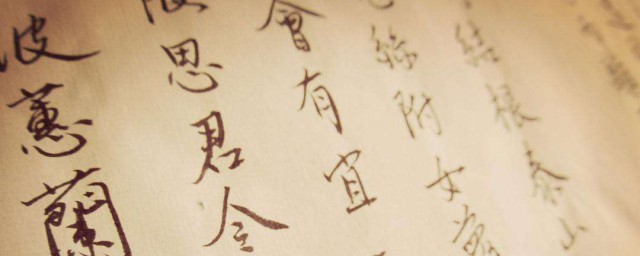 結根泰山
絲附女蘿
會有宜
思君令
彼蕙蘭